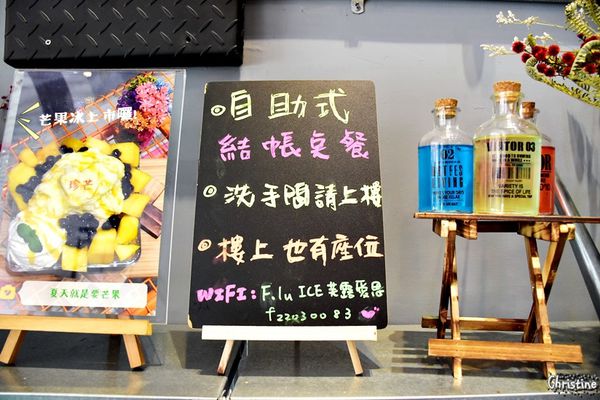 芒果冰上市囉!
珍芒
夏天就是要芒果
自助式
結帳桌餐
洗手間請上樓
樓上也有座位
WIFI: F.lu ICE 芙露愛思
f22030083
02
03
VARIETY IS
THE SPICE OF LIFE
Christine